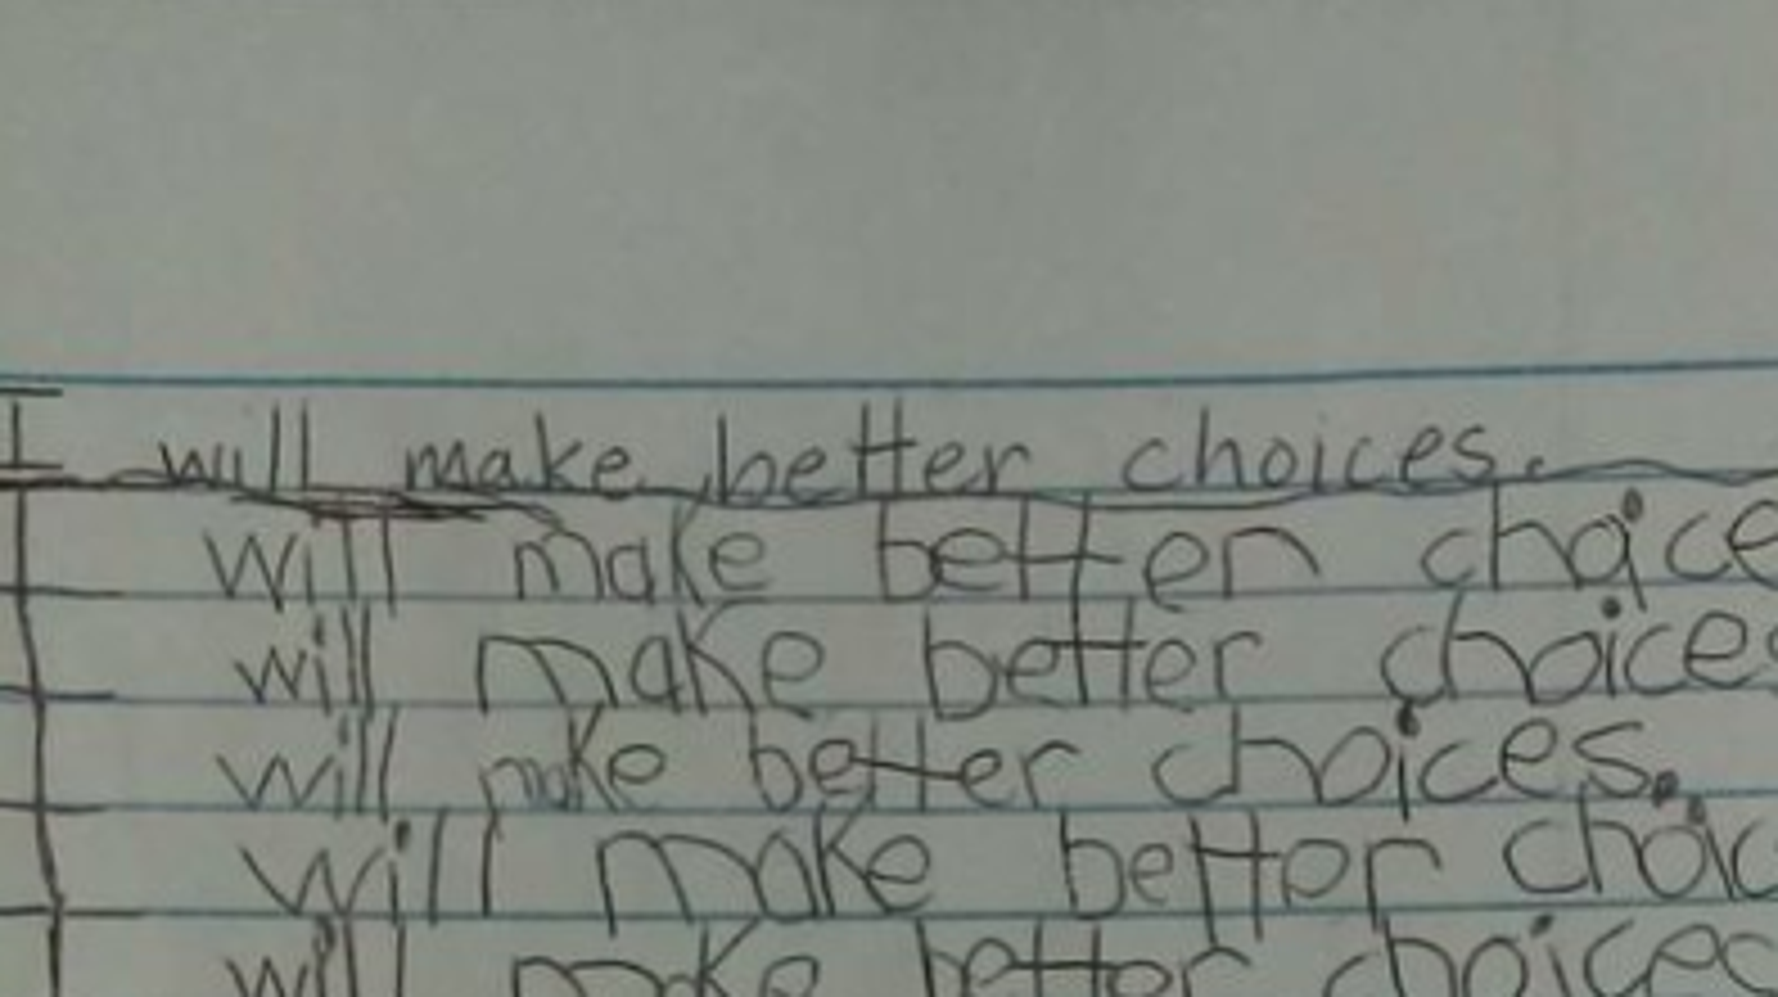 I will make better choices.
I will make better choice
I will make better choices
I will make better choices.
I will make better choic
I will make better choices